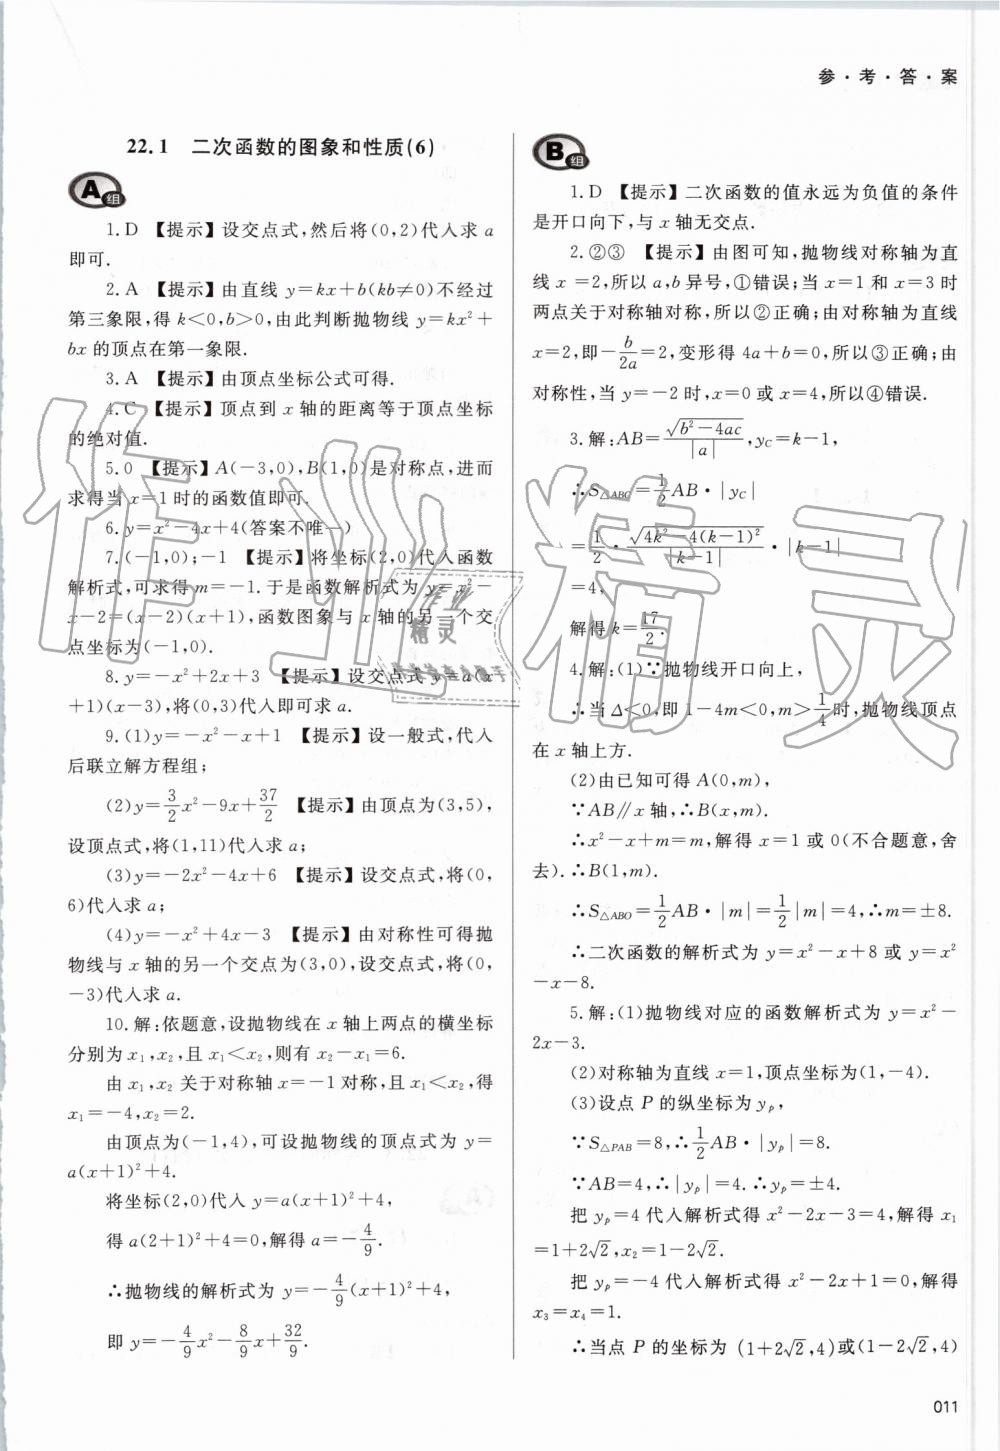 参·考·答·案
22.1 二次函数的图象和性质(6)
A组
1.D 【提示】设交点式,然后将(0,2)代入求 a
即可.
2.A 【提示】由直线 y=kx+b(kb≠0)不经过
第三象限,得 k<0,b>0,由此判断抛物线 y=kx²+
bx 的顶点在第一象限.
3.A 【提示】由顶点坐标公式可得.
4.C 【提示】顶点到 x 轴的距离等于顶点坐标
的绝对值.
5.0 【提示】A(-3,0),B(1,0)是对称点,进而
求得当 x=1 时的函数值即可.
6.y=x²-4x+4(答案不唯一)
7.(-1,0);-1 【提示】将坐标(2,0)代入函数
解析式,可求得 m=-1.于是函数解析式为 y=x²-
x-2=(x-2)(x+1),函数图象与 x 轴的另一个交
点坐标为(-1,0).
8.y=-x²+2x+3 【提示】设交点式 y=a(x
+1)(x-3),将(0,3)代入即可求 a.
9.(1)y=-x²-x+1 【提示】设一般式,代入
后联立解方程组;
(2)y=3/2x²-9x+37/2 【提示】由顶点为(3,5),
设顶点式,将(1,11)代入求 a;
(3)y=-2x²-4x+6 【提示】设交点式,将(0,
6)代入求 a;
(4)y=-x²+4x-3 【提示】由对称性可得抛
物线与 x 轴的另一个交点为(3,0),设交点式,将(0,
-3)代入求 a.
10.解:依题意,设抛物线在 x 轴上两点的横坐标
分别为 x₁,x₂,且 x₁<x₂,则有 x₂-x₁=6.
由 x₁,x₂ 关于对称轴 x=-1 对称,且 x₁<x₂,得
x₁=-4,x₂=2.
由顶点为(-1,4),可设抛物线的顶点式为 y=
a(x+1)²+4.
将坐标(2,0)代入 y=a(x+1)²+4,
得 a(2+1)²+4=0,解得 a=-4/9.
∴抛物线的解析式为 y=-4/9(x+1)²+4,
即 y=-4/9x²-8/9x+32/9.
B组
1.D 【提示】二次函数的值永远为负值的条件
是开口向下,与 x 轴无交点.
2.②③ 【提示】由图可知,抛物线对称轴为直
线 x=2,所以 a,b 异号,①错误;当 x=1 和 x=3 时
两点关于对称轴对称,所以②正确;由对称轴为直线
x=2,即-b/2a=2,变形得 4a+b=0,所以③正确;由
对称性,当 y=-2 时,x=0 或 x=4,所以④错误.
3.解:AB=√(b²-4ac)/|a|,y_C=k-1,
∴S△ABC=1/2AB·|y_C|
=1/2·√(4k²-4(k-1)²)/|k-1|·|k-1|
=4,
解得 k=17/2.
4.解:(1)∵抛物线开口向上,
∴当 Δ<0,即 1-4m<0,m>1/4时,抛物线顶点
在 x 轴上方.
(2)由已知可得 A(0,m),
∵AB∥x 轴,∴B(x,m).
∴x²-x+m=m,解得 x=1 或 0(不合题意,舍
去).∴B(1,m).
∴S△ABO=1/2AB·|m|=1/2|m|=4,∴m=±8.
∴二次函数的解析式为 y=x²-x+8 或 y=x²
-x-8.
5.解:(1)抛物线对应的函数解析式为 y=x²-
2x-3.
(2)对称轴为直线 x=1,顶点坐标为(1,-4).
(3)设点 P 的纵坐标为 yₚ,
∵S△PAB=8,∴1/2AB·|yₚ|=8.
∵AB=4,∴|yₚ|=4.∴yₚ=±4.
把 yₚ=4 代入解析式得 x²-2x-3=4,解得 x₁
=1+2√2,x₂=1-2√2.
把 yₚ=-4 代入解析式得 x²-2x+1=0,解得
x₃=x₄=1.
∴当点 P 的坐标为 (1+2√2,4)或(1-2√2,4)
011
作业精灵
作业
精灵